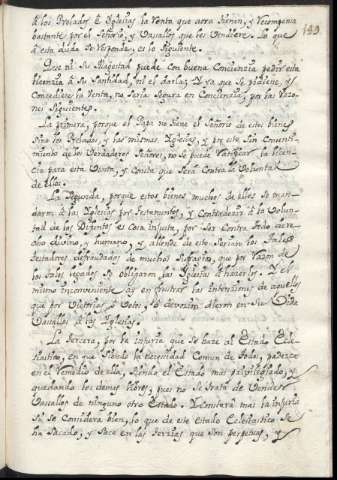 â los Prelados ê Iglesias la Venta que será Sienin, y Recompensa 199
bastante por el Señorio, y Vasallos que les Vendiere. Lo que
â esta duda se Responde, es lo Siguiente.
Que ni Su Magestad puede con buena Conciencia pedir esta
licencia â Su Santidad, ni el darla; Y ya que se pidiese, y
Concediese la Venta, no sería Segura en Conciencia, por las Razo-
nes Siguientes.
La primera, porque el Papa no tiene el Señorio de estos bienes
Sino los Prelados, y las mismas Iglesias, y por esto Sin Consenti-
miento de los Verdaderos Señores, no se puede Ratificar la licen-
cia para esta Venta, y Consta que será Contra la Voluntad
de ellos.
La Segunda, porque estos bienes muchos de ellos se man-
daron â las Iglesias por Testamentos, y Contravenir â la Volun-
tad de los Difuntos es Cosa injusta, por Ser Contra todo dere-
cho divino, y humano, y allende de esto Serían los
Testadores defraudados de muchos Sufragios, que por Razon de
los tales legados se obligaron las Iglesias â hacerles. Y el
mismo inconveniente es en frustrar las intenciones de aquellos
que por Victorias, y Votos, ô devocion dieron
Vasallos â las Iglesias.
La Tercera, por la injuria que se hace al Estado Ecle-
siastico, en que Siendo la necesidad Comun de todos, padezca
en el Remedio de ella, Siendo el Estado mas privilegiado, y
quedando los demas libres, pues no se trata de Vender
Vasallos de ninguno otro Estado. Y Constará mas la injuria
Si se Considera bien, lo que de este Estado Eclesiastico Se
ha Sacado, y Saca en las Tercias que son perpetuas, y